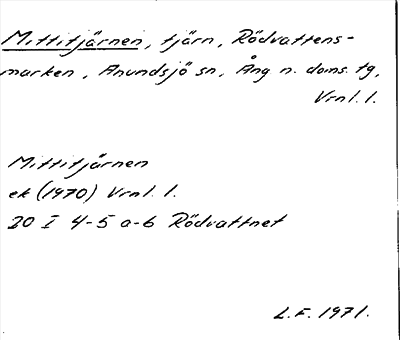 Mittitjärnen, tjärn, Rödvattens-
marken, Anundsjö sn, Ång n. doms. tg,
Vrnl. l.
Mittitjärnen
ek (1970) Vrnl. l.
20 I 4-5 a-b Rödvattnet
L.F. 1971.